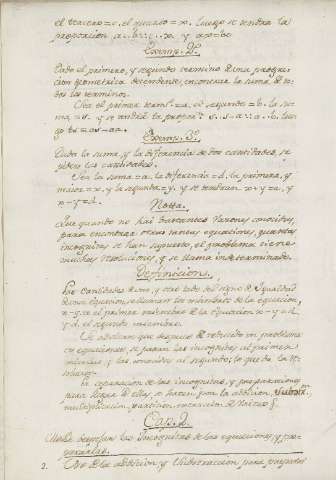 el tercero = c, el quarto = x. luego se tendrá la
proporcion a . b :: c . x y ax = bc
Exemp. 2.
Dado el primero, y segundo termino de una progre-
sion geometrica decendente, encontrar la suma de to-
dos los terminos.
Sea el primer term.º = a, el segundo = b, la su-
ma = s. y se tendrá la propor.ⁿ s . s - a :: a . b, lue-
go bs = as - aa.
Exemp. 3.
Dada la suma, y la diferencia de dos cantidades, se
piden las cantidades.
Sea la suma = a, la diferencia = d, la primera, y
maior = x, y la segunda = y, y se tendran x + y = a, y
x - y = d.
Notta.
Que quando no hai bastantes razones conocidas,
para encontrar otras tantas equaciones, quantas
incognitas se han supuesto, el problema tiene
muchas resoluciones, y se llama indeterminado.
Definicion.
Las cantidades de uno, y otro lado del signo de igualdad
de una equacion, se llaman los miembros de la equacion,
x - y es el primer miembro de la equacion x - y = d,
y d, el segundo miembro.
que despues de reducido un problema
en equaciones, se pasan las incognitas al primer
miembro, y las conocidas al segundo, lo que da la
La separacion de las incognitas, y preparaciones
para llegar a ellas, se hacen por la addicion, Substr.ⁿ
multiplicacion, particion, extraccion de
Cap. 2.
despejan las incognitas de las equaciones y pre-
pararlas.
2. Uso de la addicion, y Substraccion para preparar